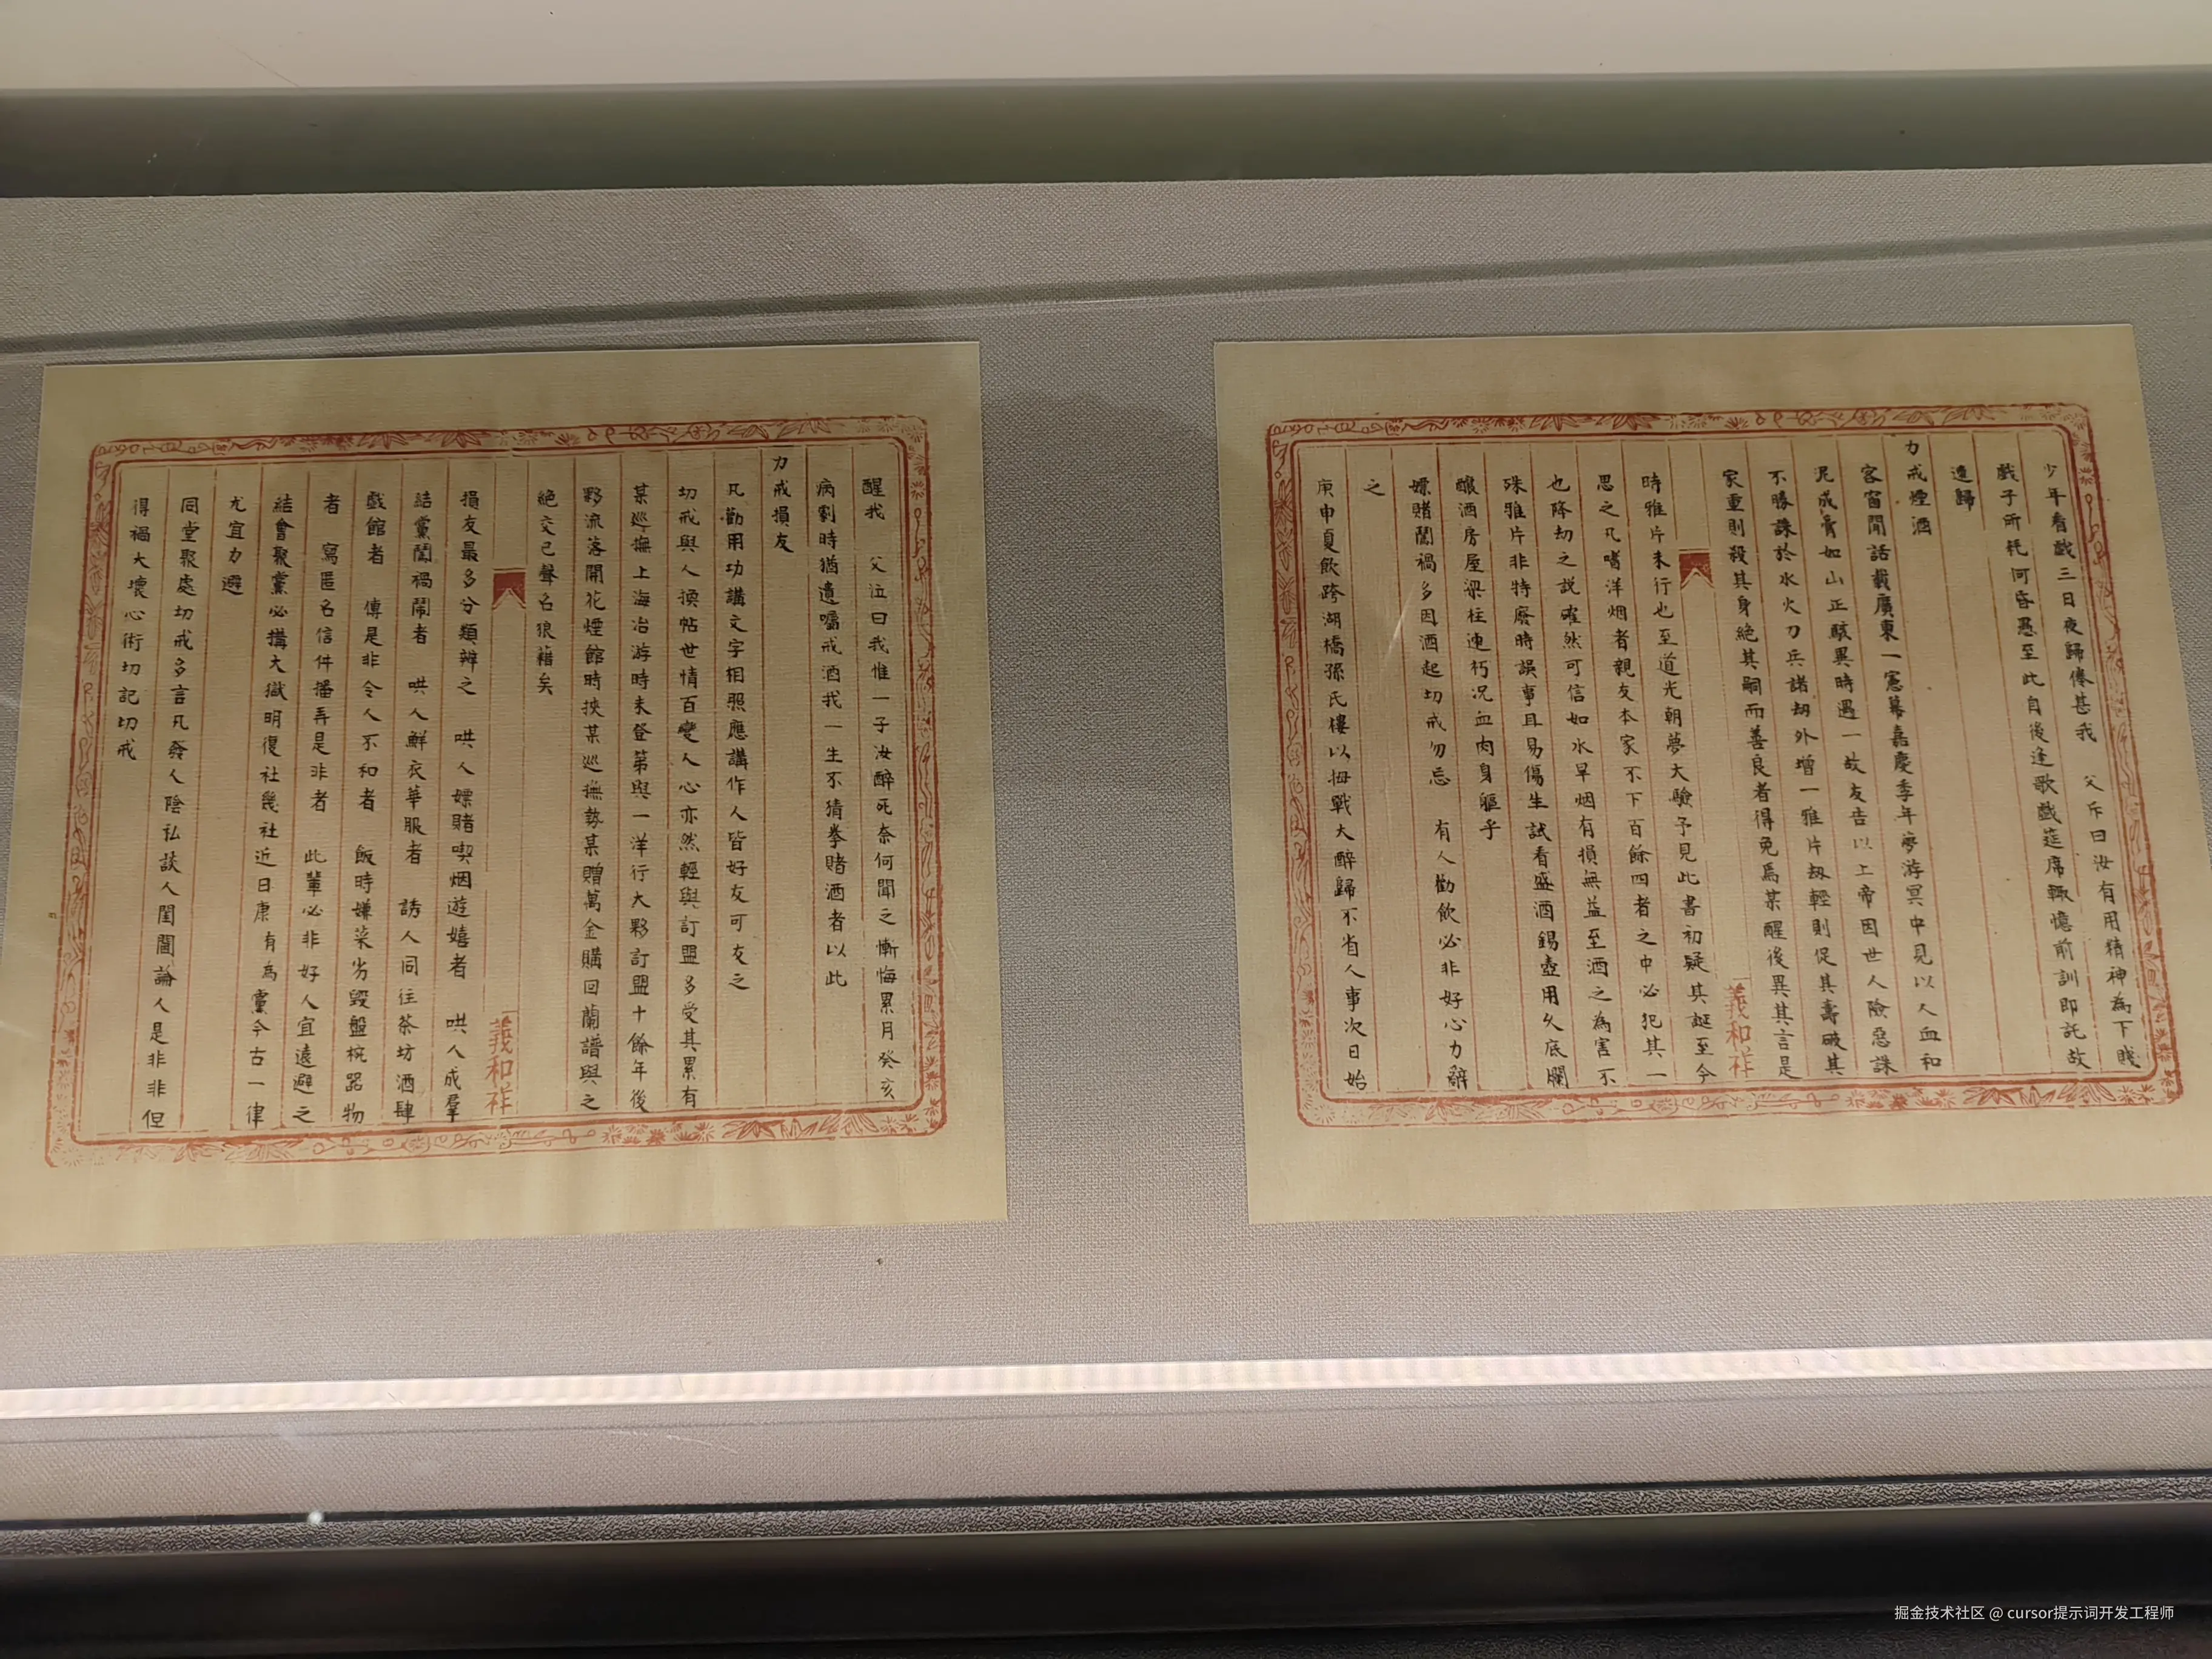 少年看戲三日夜歸倦甚我　父斥曰汝有用精神為下賤
戲子所耗何昏愚至此自後逢歌戲筵席輒憶前訓即託故
逃歸
力戒煙酒
客窗閒話載廣東一憲幕嘉慶季年夢游冥中見以人血和
泥成膏如山正駭異時遇一故友告以上帝因世人險惡誅
不勝誅於水火刀兵諸劫外增一雅片劫輕則促其壽破其
家重則殺其身絕其嗣而善良者得免焉某醒後異其言是
義和祥
時雅片未行也至道光朝夢大驗予見此書初疑其誕至今
思之凡嗜洋烟者親友本家不下百餘四者之中必犯其一
也降劫之說確然可信如水旱烟有損無益至酒之為害不
殊雅片非特廢時誤事且易傷生試看盛酒錫壺用久底爛
釀酒房屋梁柱速朽况血肉身軀乎
嫖賭闖禍多因酒起切戒勿忘　有人勸飲必非好心力辭
之
庚申夏飲跨湖橋孫氏樓以拇戰大醉歸不省人事次日始
醒我　父泣曰我惟一子汝醉死奈何聞之慚悔累月癸亥
病劇時猶遺囑戒酒我一生不猜拳賭酒者以此
力戒損友
凡勸用功講文字相照應講作人皆好友可友之
切戒與人換帖世情百變人心亦然輕與訂盟多受其累有
某巡撫上海冶游時未登第與一洋行大夥訂盟十餘年後
夥流落開花煙館時挾某巡撫勢某贈萬金購回蘭譜與之
絕交已聲名狼藉矣
義和祥
損友最多分類辨之　哄人嫖賭喫烟遊嬉者　哄人成羣
結黨闖禍鬧者　哄人鮮衣華服者　誘人同往茶坊酒肆
戲館者　傳是非令人不和者　飯時嫌菜劣毀盤椀器物
者　寫匿名信件播弄是非者　此輩必非好人宜遠避之
結會聚黨必搆大獄明復社幾社近日康有為黨今古一律
尤宜力避
同堂聚處切戒多言凡發人陰私談人閨閫論人是非非但
得禍大壞心術切記切戒
掘金技术社区 @ cursor提示词开发工程师